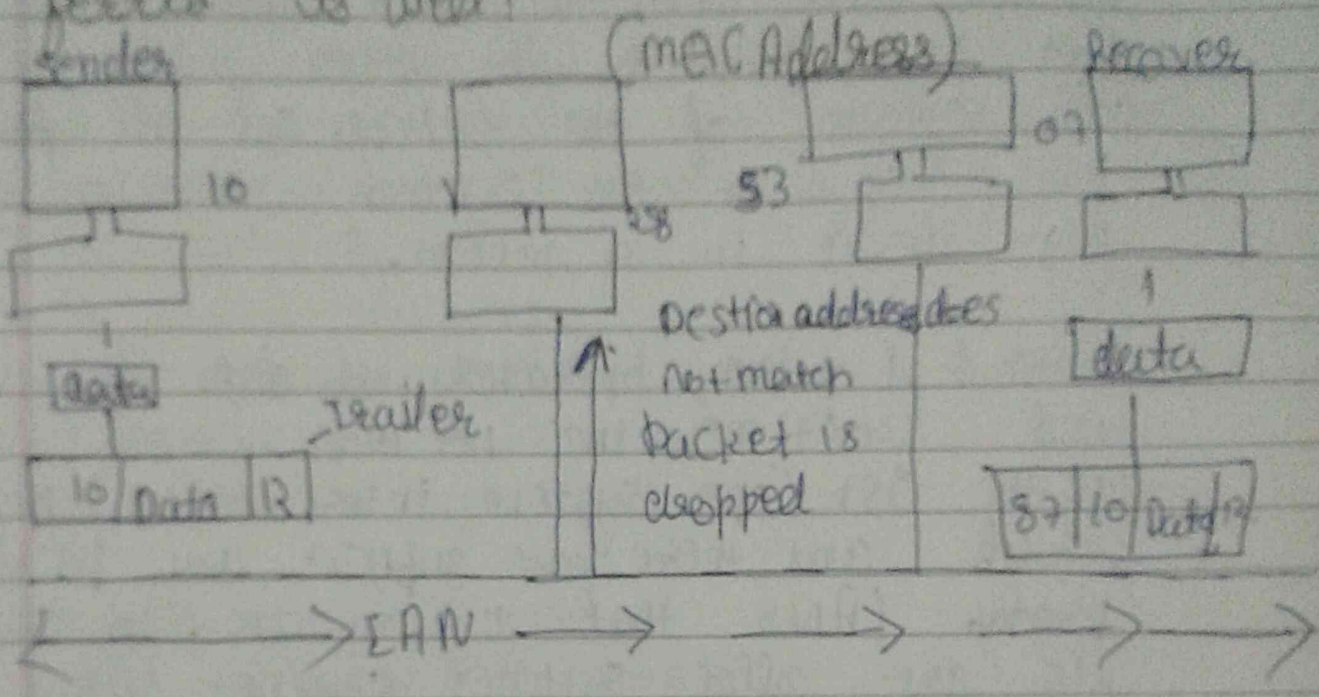 as well
(MAC Address)
Sender
Receiver
10
28
53
07
Data
Trailer
10 Data 12
Destion address does
not match
packet is
dropped
data
87 10 Data 12
LAN